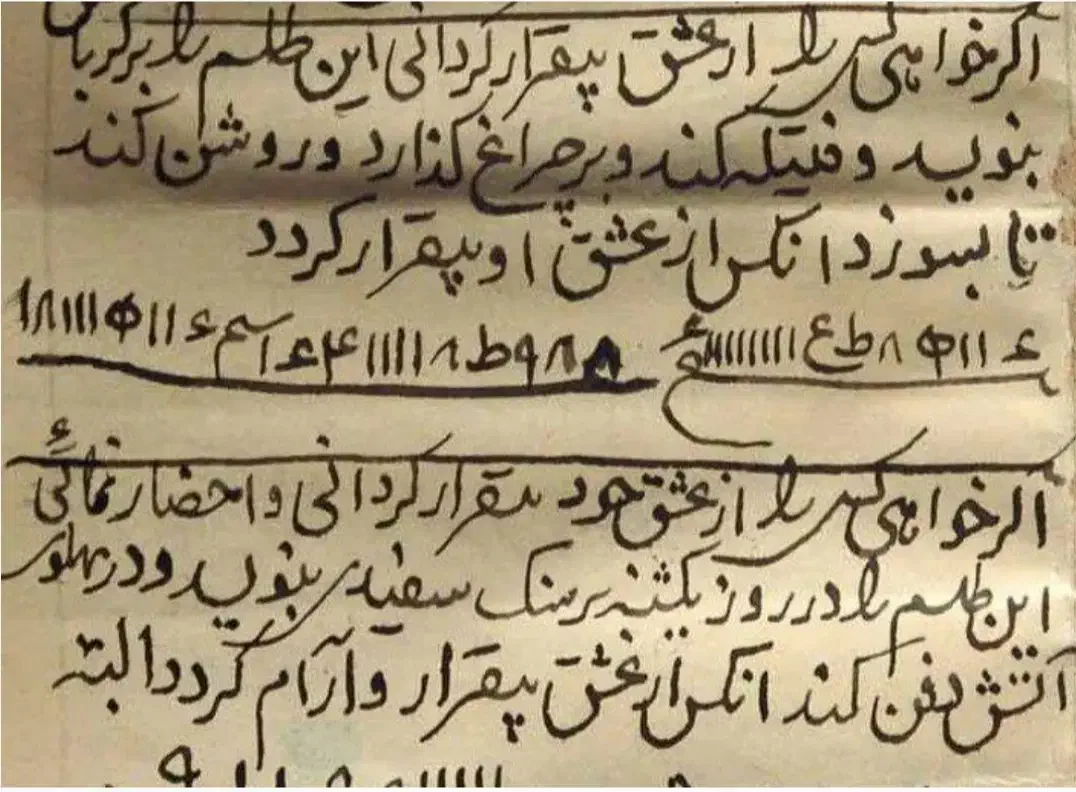 اگر خواهی کسی را از عشق بیقرار گردانی این طلسم را بر کرباس
بنویسد و فتیله کند و بر چراغ گذارد و روشن کند
تا بسوزد انکس از عشق او بیقرار گردد
ء ١١ ٨ ط ع ١١١١١١١
٨ ٩ ط ٨ ١١١١ ۴ ء اسم ء ١١ ١١١ ٨١
اگر خواهی کسی را از عشق خود بیقرار گردانی و احضار نمائی
این طلسم را در روز یکشنبه بر سنک سفیدی بنویسد و در پهلوی
آتش دفن کند انکس از عشق بیقرار و آرام گردد البته